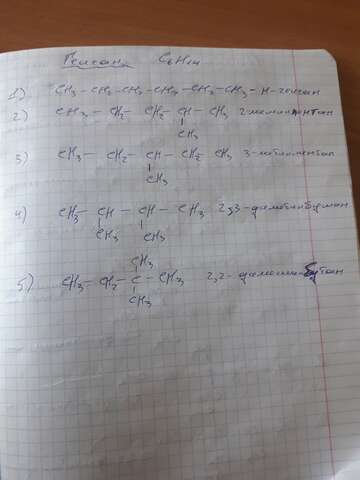 Гексан C₆H₁₄
1) CH₃ – CH₂ – CH₂ – CH₂ – CH₂ – CH₃ – Н – гексан
2) CH₃ – CH₂ – CH₂ – CH – CH₃ 2-метилпентан
CH₃
3) CH₃ – CH₂ – CH – CH₂ CH₃ 3-метилпентан
CH₃
4) CH₃ – CH – CH – CH₃ 2,3-диметилбутан
CH₃ CH₃
CH₃
5) CH₃ – CH₂ – C – CH₃ 2,2-диметил-бутан
CH₃